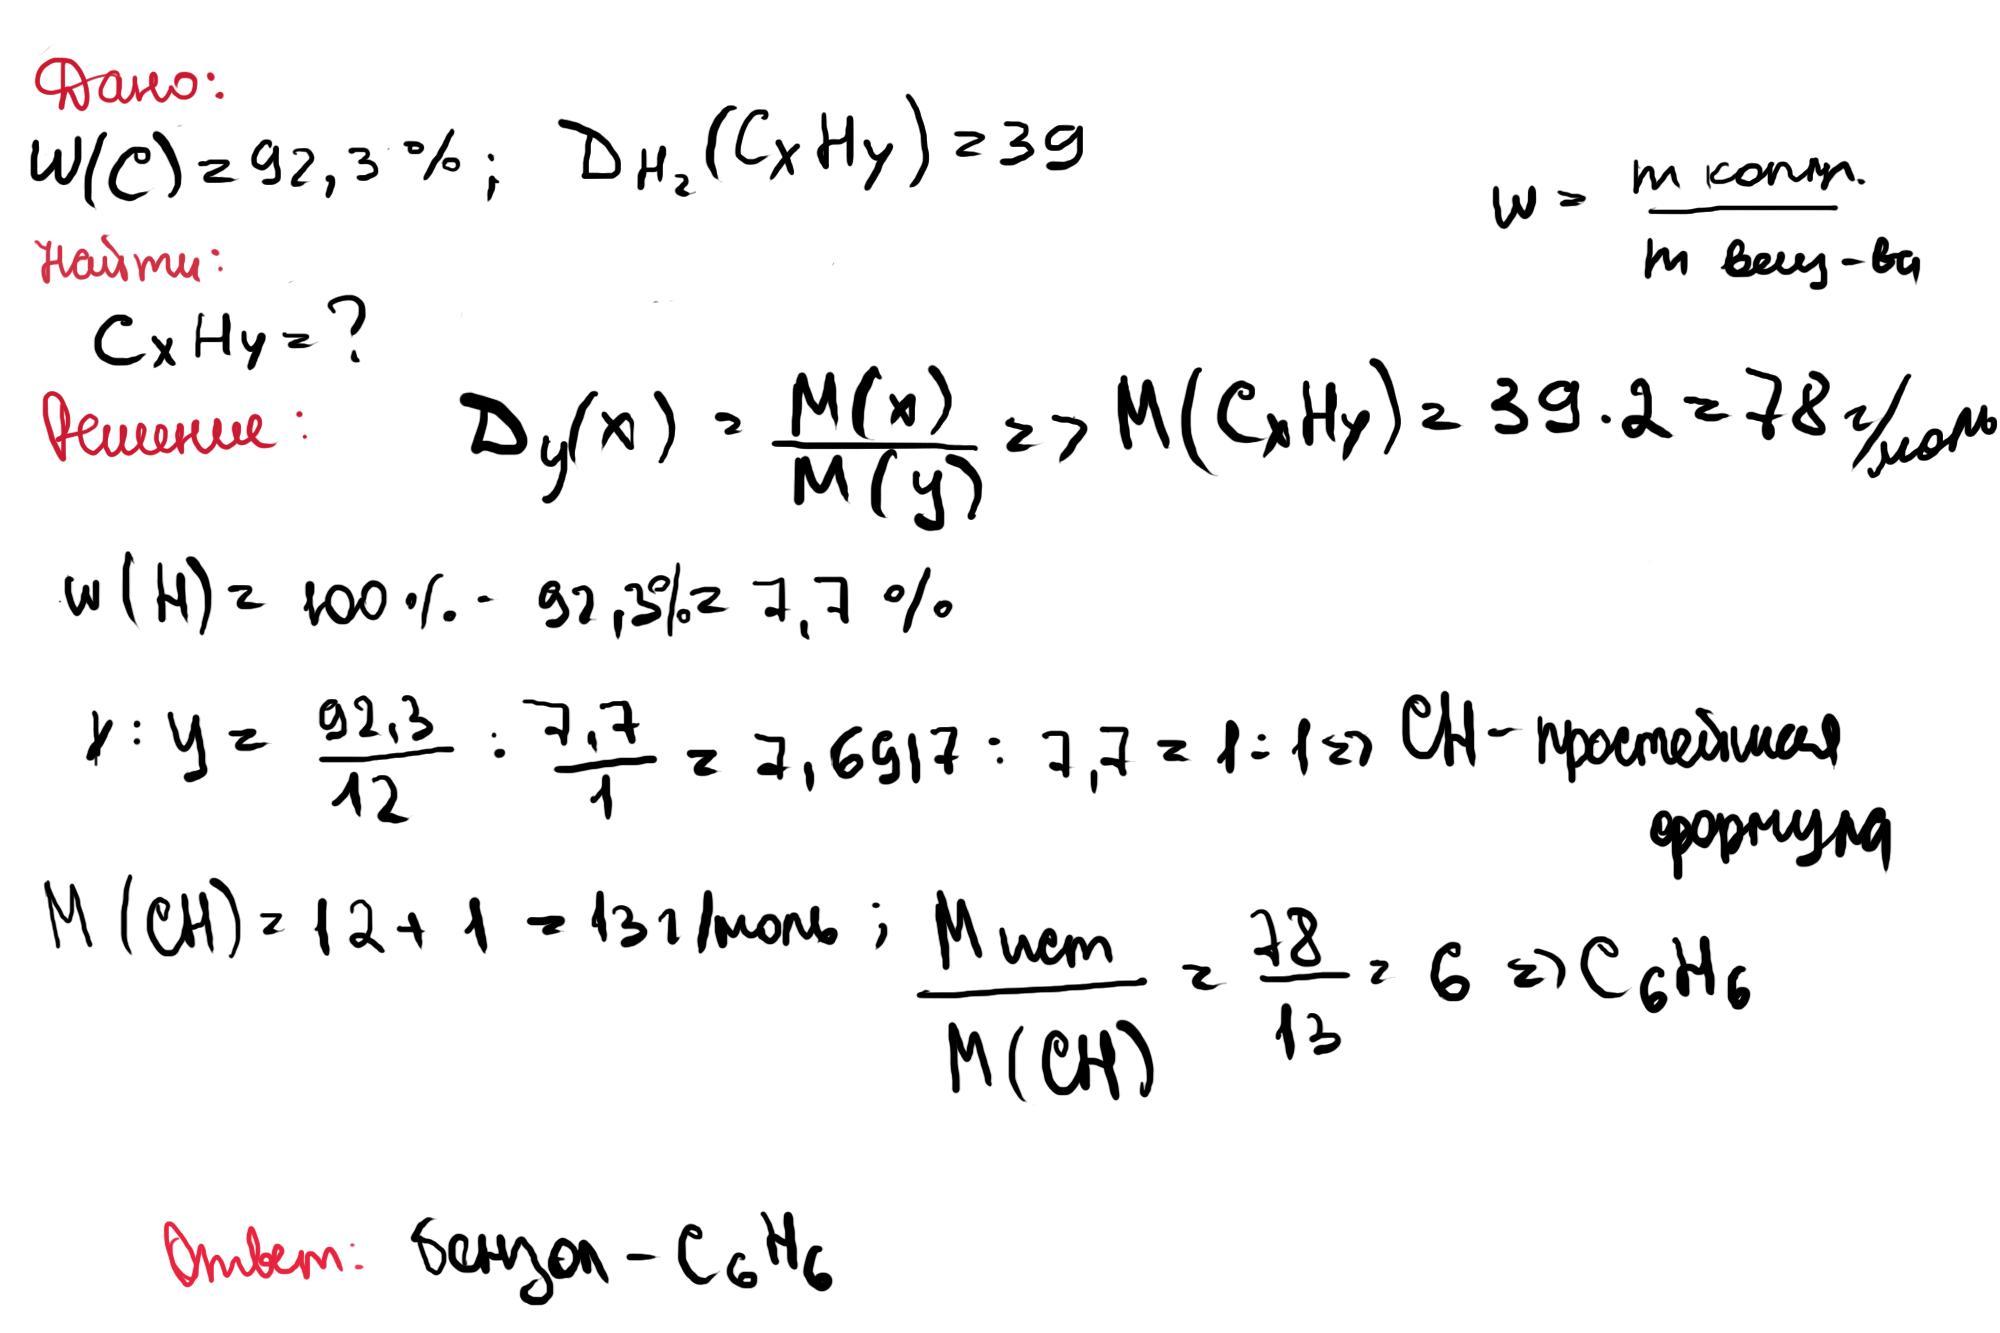 Дано:
W(C) = 92,3 %; D_H₂(CxHy) = 39
w = m комп. / m вещ-ва
Найти:
CxHy = ?
Решение: D_y(x) = M(x) / M(y) => M(CxHy) = 39 · 2 = 78 г/моль
w(H) = 100 % - 92,3% = 7,7 %
x : y = 92,3 / 12 : 7,7 / 1 = 7,6917 : 7,7 = 1 : 1 => CH - простейшая
формула
M(CH) = 12 + 1 = 13 г/моль; M ист / M(CH) = 78 / 13 = 6 => C₆H₆
Ответ: бензол - C₆H₆